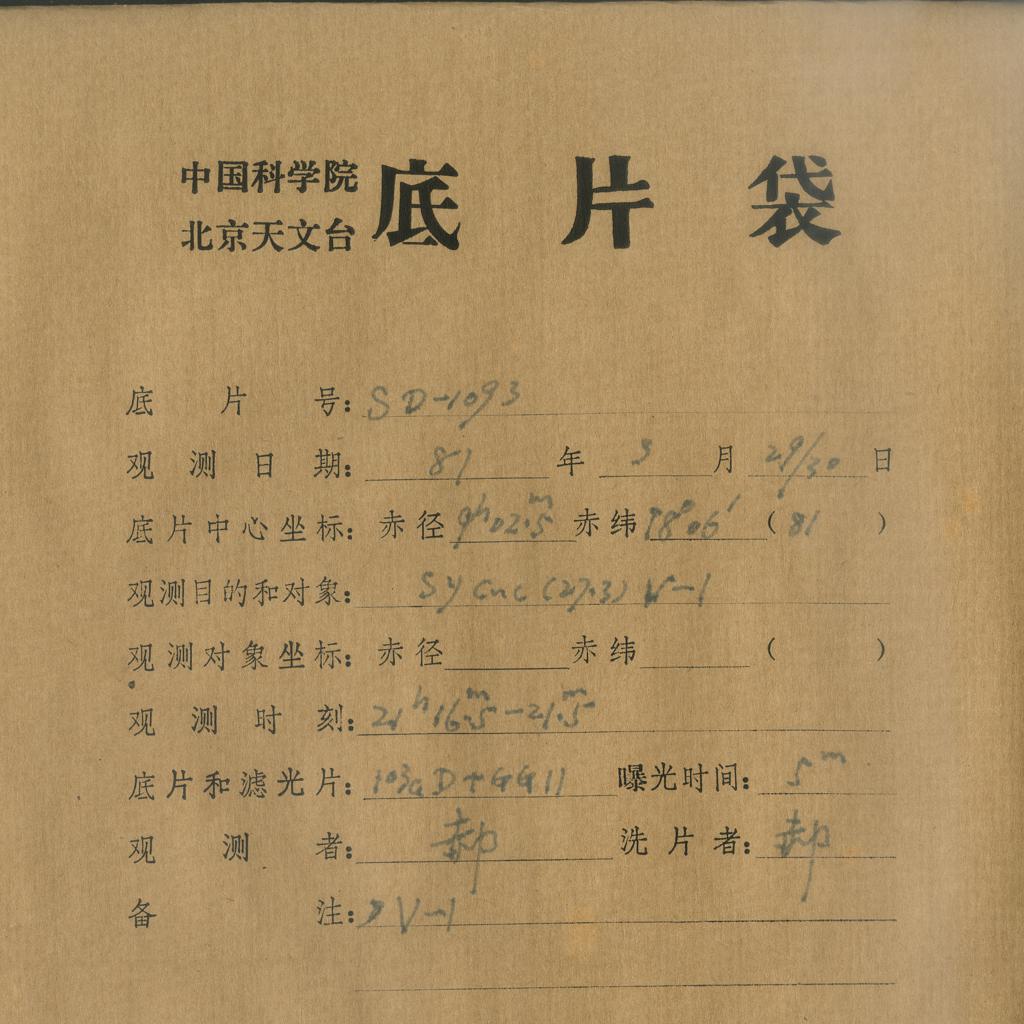 中国科学院
北京天文台
底片袋
底片号: SD-1093
观测日期: 81 年 3 月 29/30 日
底片中心坐标: 赤径 9h02m.5 赤纬 18°06′ (81)
观测目的和对象: SY Cnc (27.3) V-1
观测对象坐标: 赤径 赤纬 ( )
观测时刻: 21h16m.5-21m.5
底片和滤光片: 103aD+GG11 曝光时间: 5m
观测者: 郝 洗片者: 郝
备注: V-1